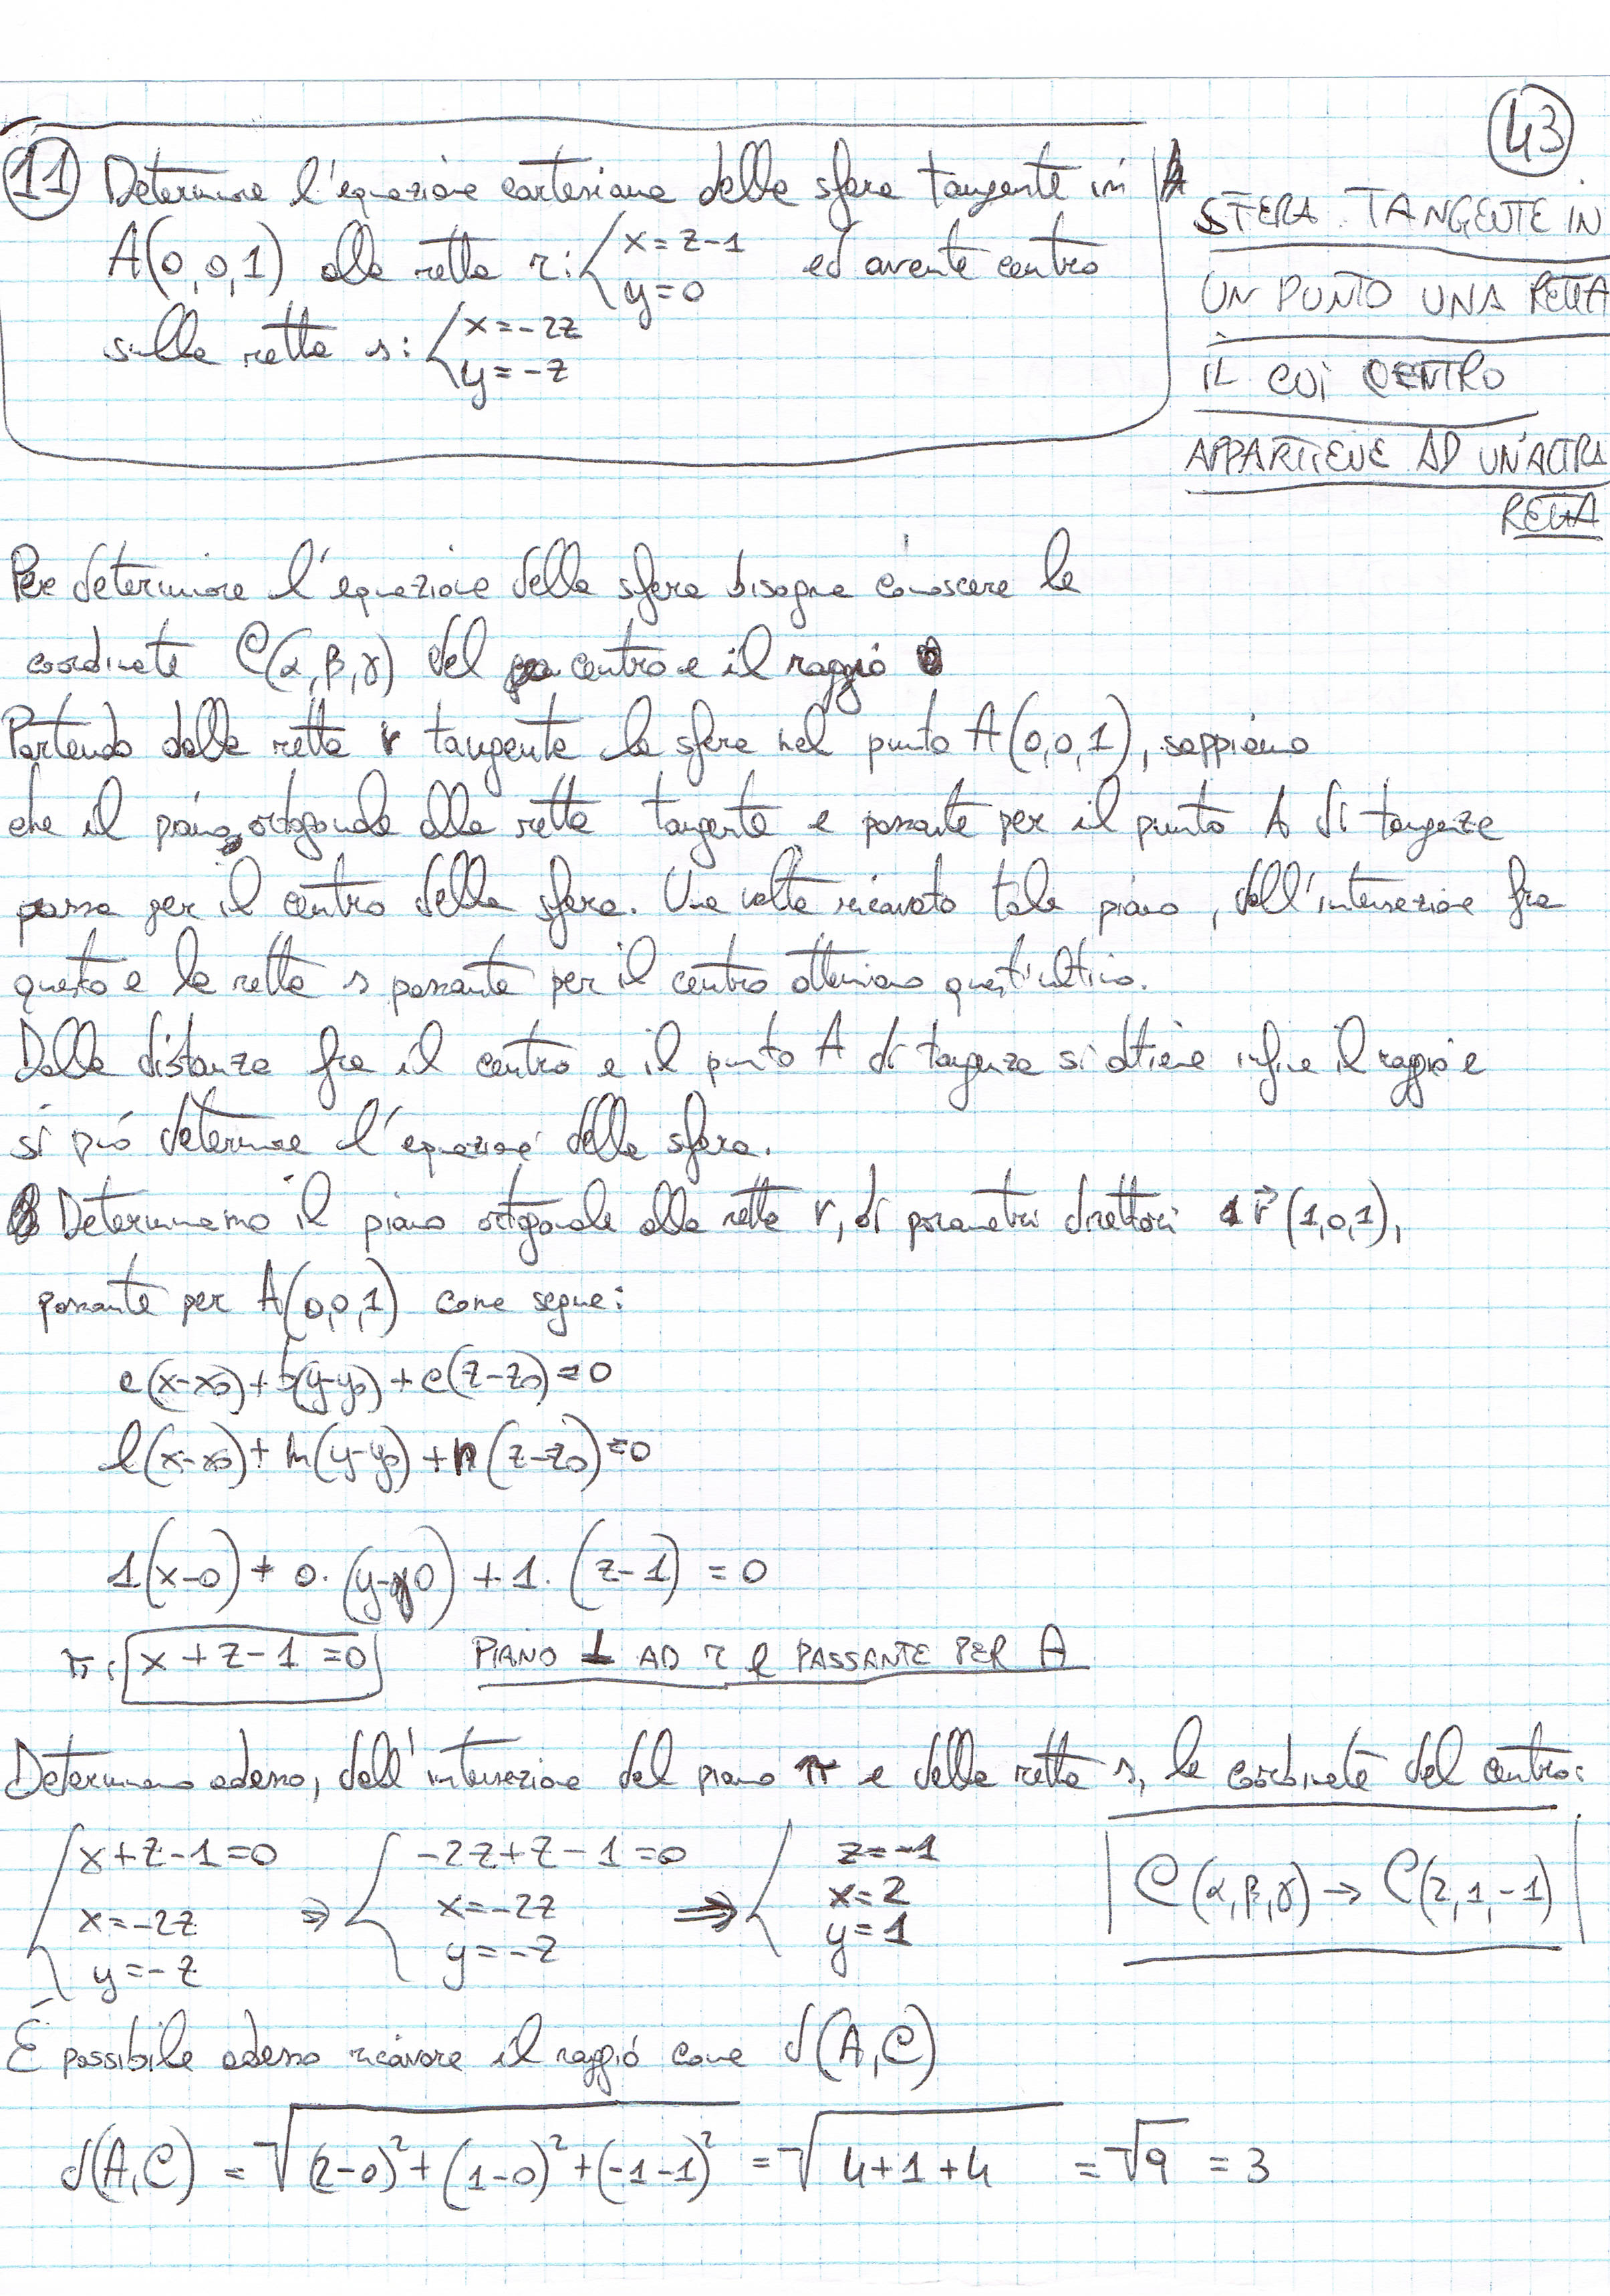 43
11 Determinare l'equazione cartesiana della sfera tangente in
A(0,0,1) alla retta r: { x = z-1 ed avente centro
y = 0
sulla retta s: { x = -2z
y = -z
SFERA TANGENTE IN
UN PUNTO UNA RETTA
IL CUI CENTRO
APPARTIENE AD UN'ALTRA
RETTA
Per determinare l'equazione della sfera bisogna conoscere le
coordinate C(α,β,γ) del centro e il raggio
Partendo dalla retta r tangente la sfera nel punto A(0,0,1), sappiamo
che il piano ortogonale alla retta tangente e passante per il punto A di tangenza
passa per il centro della sfera. Una volta ricavato tale piano, dall'intersezione fra
questo e la retta s passante per il centro otteniamo quest'ultimo.
Dalla distanza fra il centro e il punto A di tangenza si ottiene infine il raggio e
si può determinare l'equazione della sfera.
Determiniamo il piano ortogonale alla retta r, di parametri direttori r⃗ (1,0,1),
passante per A(0,0,1) come segue:
a(x-x₀) + b(y-y₀) + c(z-z₀) = 0
l(x-x₀) + m(y-y₀) + n(z-z₀) = 0
1(x-0) + 0·(y-0) + 1·(z-1) = 0
π: x + z - 1 = 0 PIANO ⊥ AD r e PASSANTE PER A
Determiniamo adesso, dall'intersezione del piano π e della retta s, le coordinate del centro:
{ x+z-1=0 ⇒ { -2z+z-1=0 ⇒ { z=-1
x=-2z x=-2z x=2
y=-z y=-z y=1
C(α,β,γ) → C(2,1,-1)
È possibile adesso ricavare il raggio come d(A,C)
d(A,C) = √(2-0)²+(1-0)²+(-1-1)² = √4+1+4 = √9 = 3